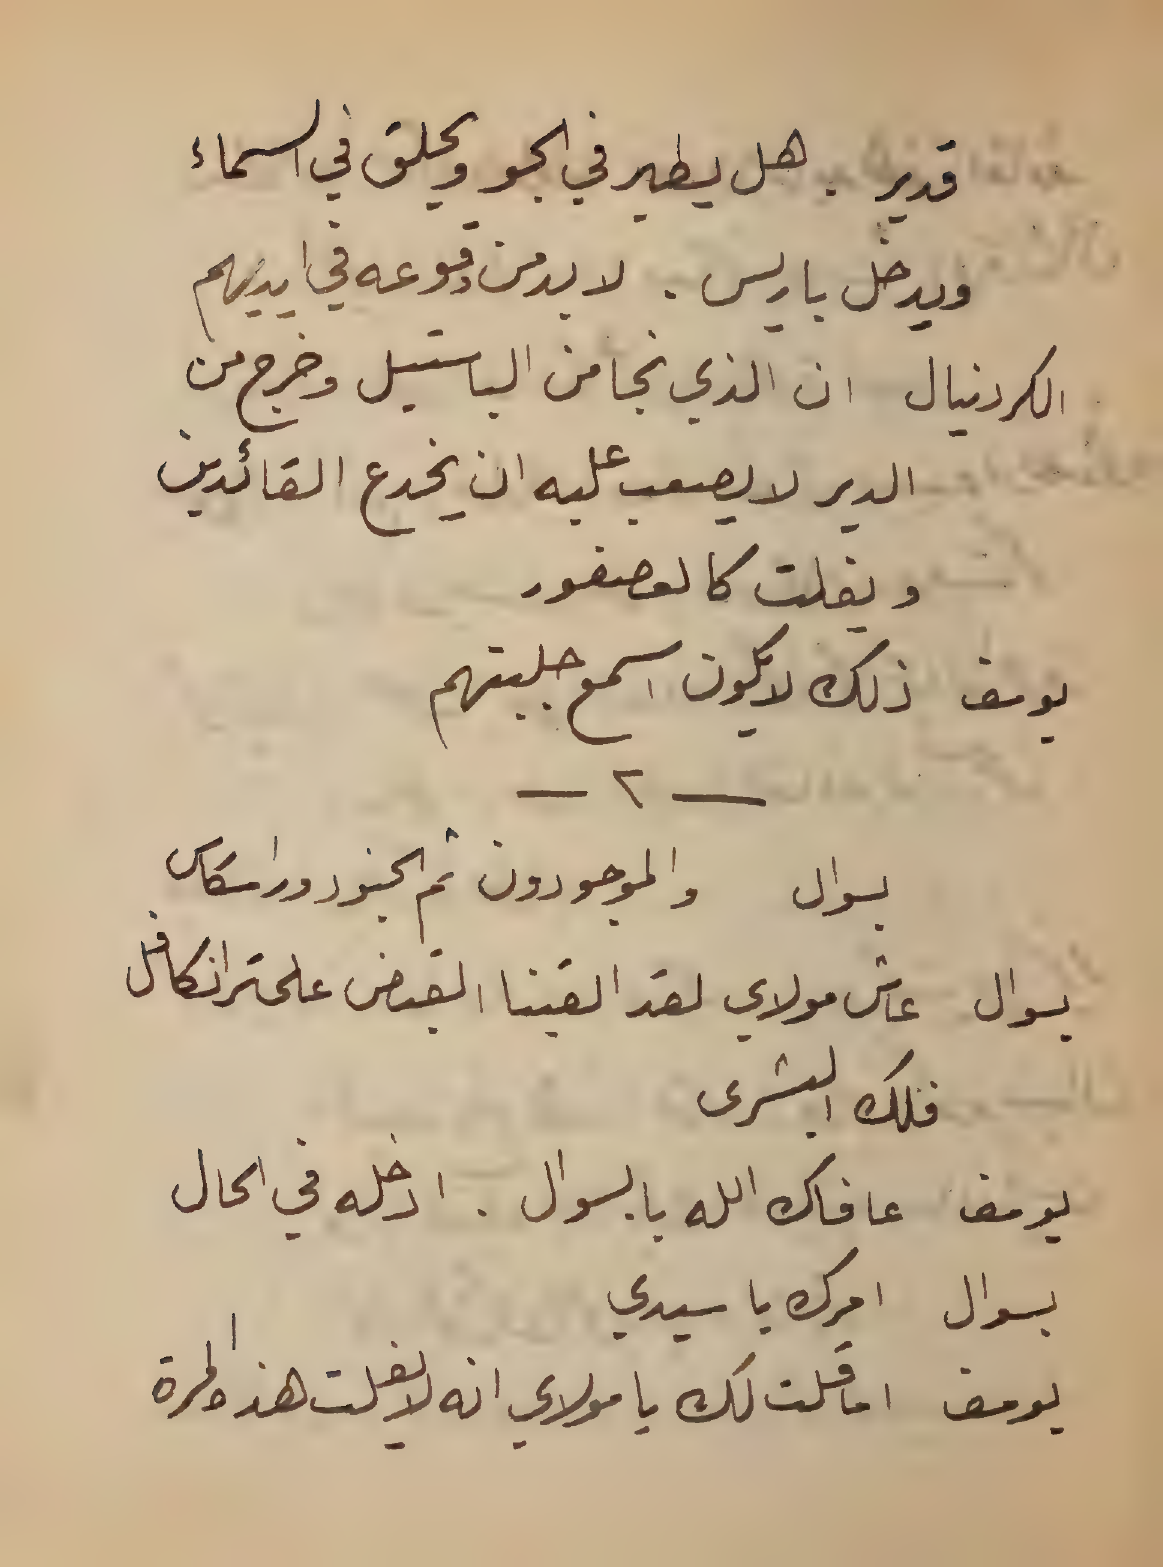 قدير . هل يطير في الجو ويحلق في السماء
ويدخل باريس . لا بد من وقوعه في ايديهم
الكردنيال ان الذي نجا من الباستيل وخرج من
الدير لا يصعب عليه ان يخدع القائدين
ويفلت كالعصفور
يوسف ذلك لا يكون اسمع جلبتهم
— ٢ —
بسوال والموجودون ثم الجنود وراسكاس
بسوال عاش مولاي لقد القينا القبض على ترانكافل
فلك البشرى
يوسف عافاك الله يا بسوال . ادخله في الحال
بسوال امرك يا سيدي
يوسف اما قلت لك يا مولاي انه لا يفلت هذه المرة